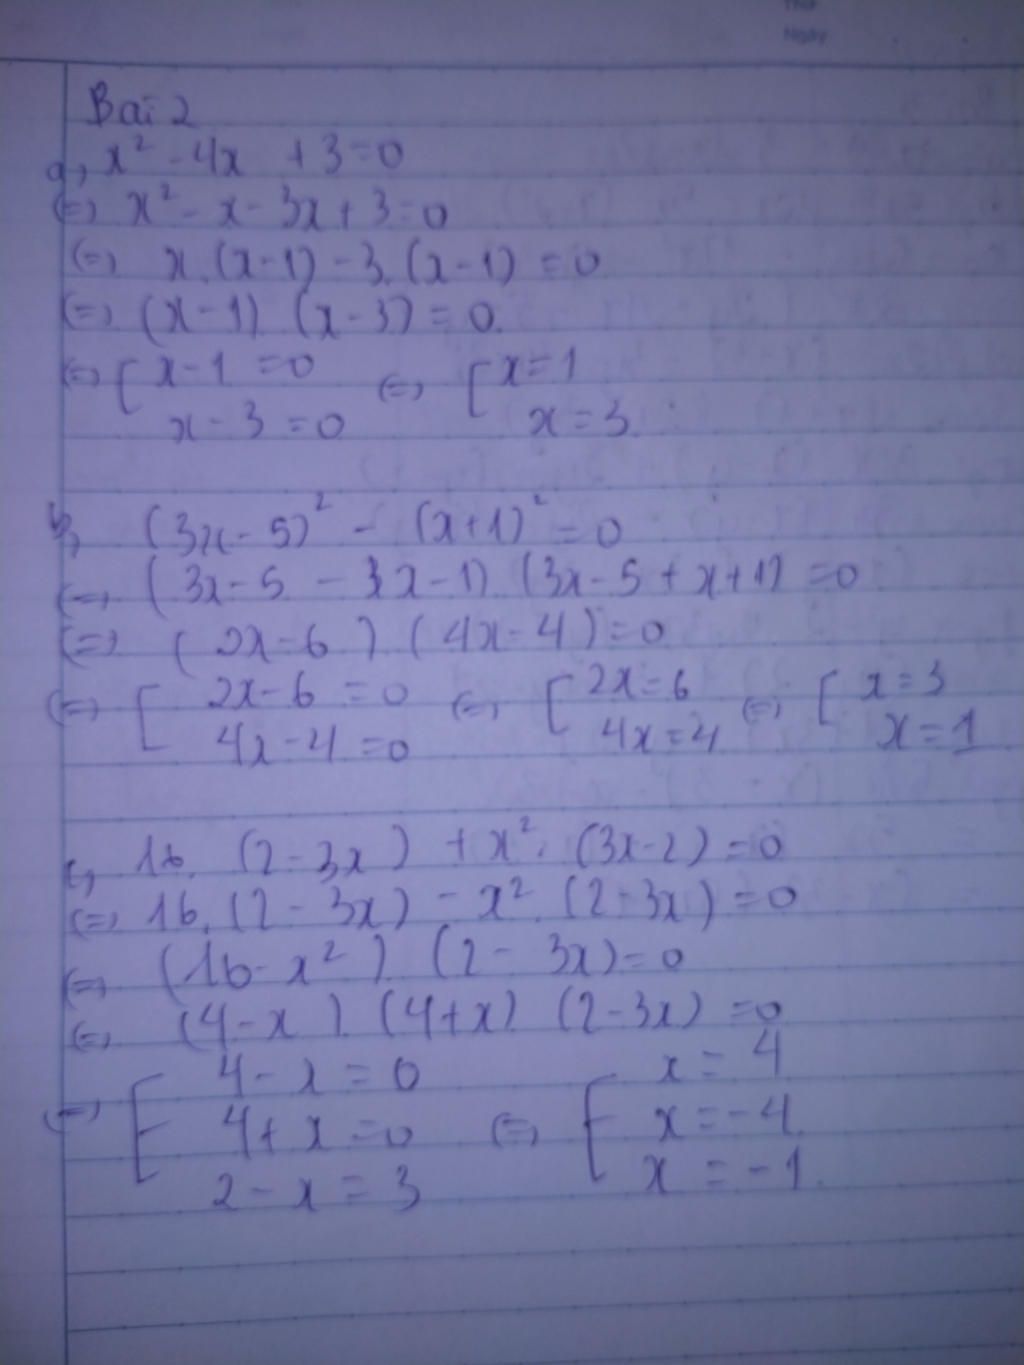 Thứ
Ngày
Bài 2
a, x² - 4x + 3 = 0
(=) x² - x - 3x + 3 = 0
(=) x.(x-1) - 3.(x-1) = 0
(=) (x-1) (x-3) = 0.
(=) [ x-1 = 0 (=) [ x = 1
x - 3 = 0 x = 3.
b, (3x-5)² - (x+1)² = 0
(=) (3x-5 - x-1) (3x-5+x+1) = 0
(=) (2x-6) (4x-4) = 0
(=) [ 2x-6 = 0 (=) [ 2x = 6 (=) [ x = 3
4x-4 = 0 4x = 4 x = 1
c, 16. (2-3x) + x². (3x-2) = 0
(=) 16. (2-3x) - x². (2-3x) = 0
(=) (16-x²). (2-3x) = 0
(=) (4-x). (4+x) (2-3x) = 0
4-x = 0 x = 4
(=) [ 4+x = 0 (=) [ x = -4
2-x = 3 x = -1.